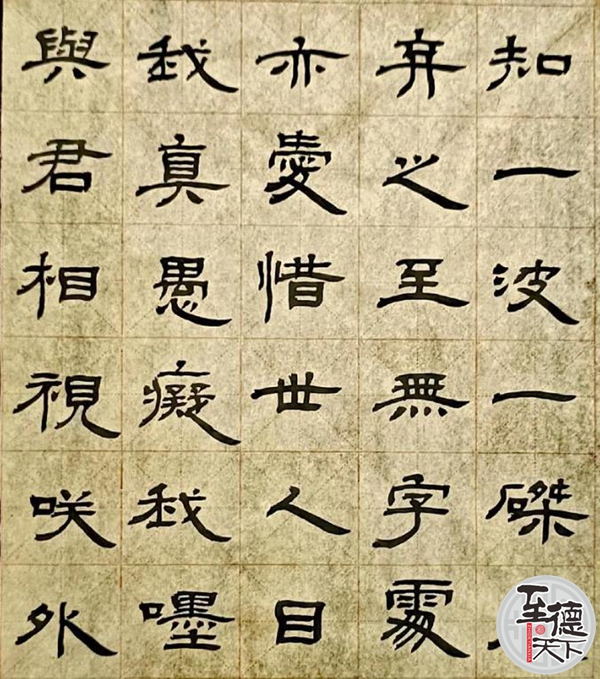 知一波一磔
弃之至無字處
亦愛惜世人目
我真愚癡我嘿
與君相視咲外
至德天下